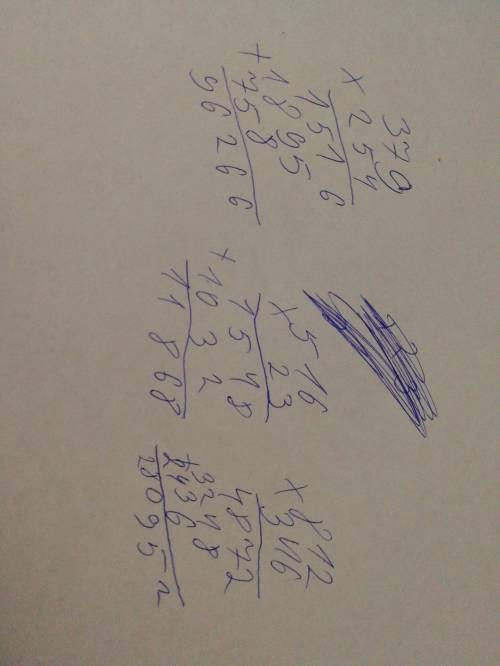 379
× 254
1516
1895
+ 758
96266
516
× 23
1548
+ 1032
11868
812
× 346
4872
+ 3248
2436
280952